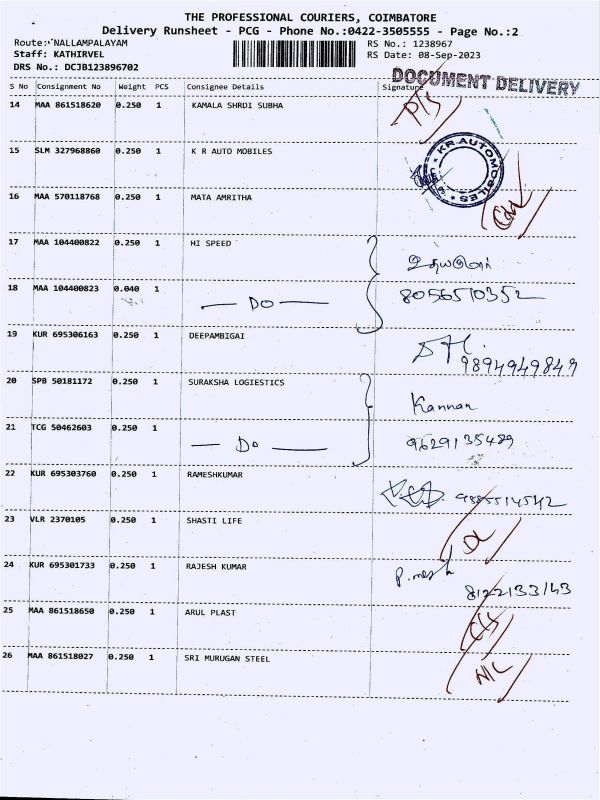 THE PROFESSIONAL COURIERS, COIMBATORE
Delivery Runsheet - PCG - Phone No.:0422-3505555 - Page No.:2
Route: NALLAMPALAYAM RS No.: 1238967
Staff: KATHIRVEL RS Date: 08-Sep-2023
DRS No.: DCJB123896702
DOCUMENT DELIVERY
S No Consignment No Weight PCS Consignee Details Signature
14 MAA 861518620 0.250 1 KAMALA SHRDI SUBHA
15 SLM 327968860 0.250 1 K R AUTO MOBILES KR AUTOMOBILES
16 MAA 570118768 0.250 1 MATA AMRITHA
17 MAA 104400822 0.250 1 HI SPEED உதயகுமார்
18 MAA 104400823 0.040 1 — Do — 8056510352
19 KUR 695306163 0.250 1 DEEPAMBIGAI 9894949849
20 SPB 50181172 0.250 1 SURAKSHA LOGIESTICS Kannan
21 TCG 50462603 0.250 1 — Do — 9629135489
22 KUR 695303760 0.250 1 RAMESHKUMAR
23 VLR 2370105 0.250 1 SHASTI LIFE
24 KUR 695301733 0.250 1 RAJESH KUMAR 8122133143
25 MAA 861518650 0.250 1 ARUL PLAST
26 MAA 861518027 0.250 1 SRI MURUGAN STEEL N/C